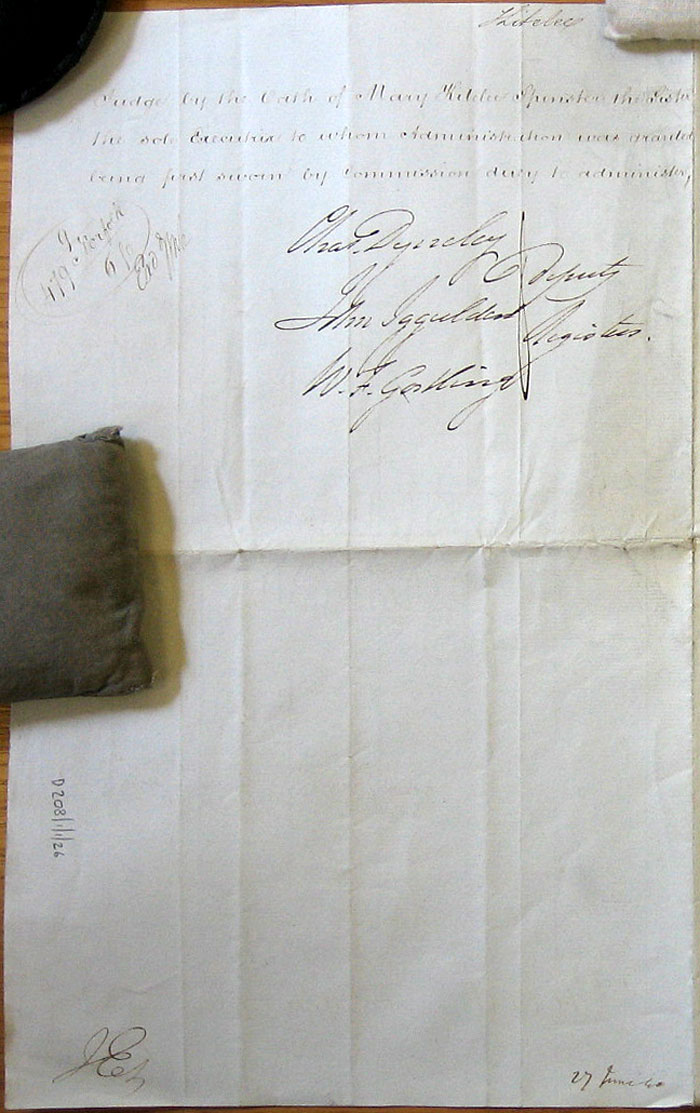 Judge by the Oath of Mary Spinster the Sister
the sole Executrix to whom Administration was granted
being first sworn by Commission duly to administer,
Chas. Dyneley
Deputy
John Iggulden
Registers.
W. F. Gostling
479
Norfolk
D208/1/1/26
27 June